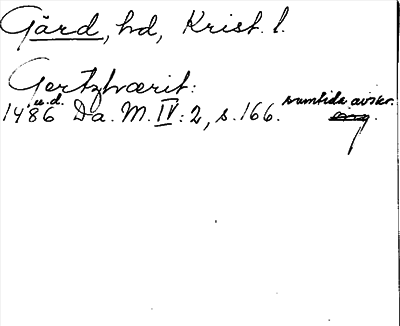 Gärd, hd, Krist. l.
Gertzhværit:
u.d. samtida avskr.
1486 Da. M. IV: 2, s. 166. orig.